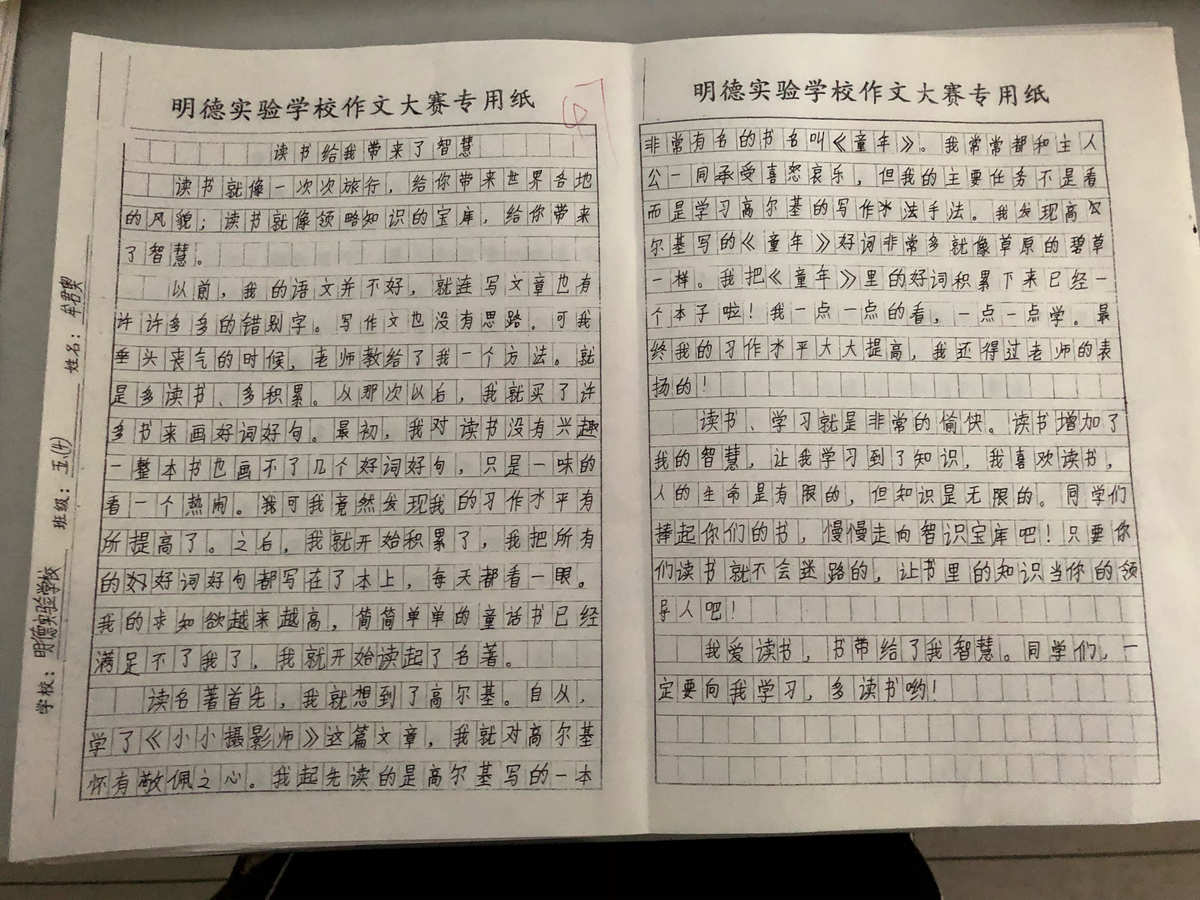 明德实验学校作文大赛专用纸
47
读书给我带来了智慧
读书就像一次次旅行，给你带来世界各地
的风貌；读书就像领略知识的宝库，给你带来
了智慧。
以前，我的语文并不好，就连写文章也有
许许多多的错别字。写作文也没有思路。可我
垂头丧气的时候，老师教给了我一个方法。就
是多读书、多积累。从那次以后，我就买了许
多书来画好词好句。最初，我对读书没有兴趣
一整本书也画不了几个好词好句，只是一味的
看一个热闹。我可我竟然发现我的习作水平有
所提高了。之后，我就开始积累了，我把所有
的好词好句都写在了本上，每天都看一眼。
我的求知欲越来越高，简简单单的童话书已经
满足不了我了，我就开始读起了名著。
读名著首先，我就想到了高尔基。自从，
学了《小小摄影师》这篇文章，我就对高尔基
怀有敬佩之心。我起先读的是高尔基写的一本
学校：明德实验学校 班级：五(4) 姓名：牟君奥
明德实验学校作文大赛专用纸
非常有名的书名叫《童年》。我常常都和主人
公一同承受喜怒哀乐，但我的主要任务不是看
而是学习高尔基的写作水法手法。我发现高
尔基写的《童年》好词非常多就像草原的碧草
一样。我把《童年》里的好词积累下来已经一
个本子啦！我一点一点的看，一点一点学。最
终我的习作水平大大提高，我还得过老师的表
扬的！
读书、学习就是非常的愉快。读书增加了
我的智慧，让我学习到了知识，我喜欢读书，
人的生命是有限的，但知识是无限的。同学们
捧起你们的书，慢慢走向智识宝库吧！只要你
们读书就不会迷路的，让书里的知识当你的领
导人吧！
我爱读书，书带给了我智慧。同学们，一
定要向我学习，多读书哟！